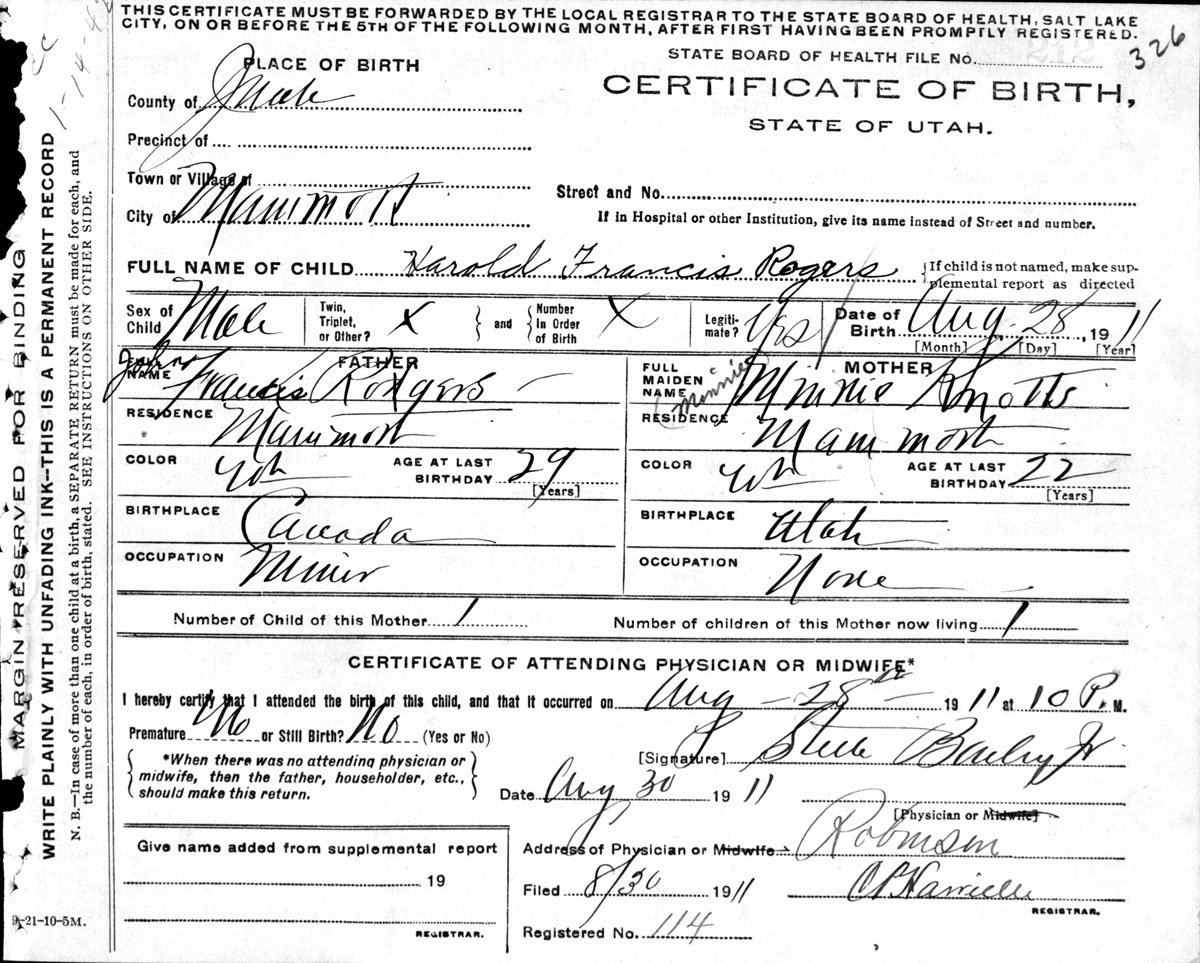 THIS CERTIFICATE MUST BE FORWARDED BY THE LOCAL REGISTRAR TO THE STATE BOARD OF HEALTH, SALT LAKE
CITY, ON OR BEFORE THE 5TH OF THE FOLLOWING MONTH, AFTER FIRST HAVING BEEN PROMPTLY REGISTERED.
STATE BOARD OF HEALTH FILE No. 326
PLACE OF BIRTH
CERTIFICATE OF BIRTH,
STATE OF UTAH.
County of Juab
Precinct of
Town or Village of
City of Mammoth
Street and No.
If in Hospital or other Institution, give its name instead of Street and number.
FULL NAME OF CHILD Harold Francis Rogers
{If child is not named, make sup-
plemental report as directed
Sex of Child Male
Twin, Triplet, or Other? X
and
Number In Order of Birth X
Legiti-mate? Yes
Date of Birth Aug. 28, 1911
[Month] [Day] [Year]
FATHER
FULL NAME John Francis Rodgers
RESIDENCE Mammoth
COLOR Wh
AGE AT LAST BIRTHDAY 29 [Years]
BIRTHPLACE Canada
OCCUPATION Miner
MOTHER
FULL MAIDEN NAME Minnie Knotts
(Minnie
RESIDENCE Mammoth
COLOR Wh
AGE AT LAST BIRTHDAY 22 [Years]
BIRTHPLACE Utah
OCCUPATION None
Number of Child of this Mother 1
Number of children of this Mother now living 1
CERTIFICATE OF ATTENDING PHYSICIAN OR MIDWIFE*
I hereby certify that I attended the birth of this child, and that it occurred on Aug - 28th - 1911 at 10 P. M.
Premature No or Still Birth? No (Yes or No)
*When there was no attending physician or
midwife, then the father, householder, etc.,
should make this return.
[Signature] Steele Bailey Jr
Date Aug 30 1911
[Physician or Midwife]
Address of Physician or Midwife Robinson
Filed 8/30 1911
REGISTRAR.
Registered No. 114
Give name added from supplemental report
19
REGISTRAR.
9-21-10-5M.
MARGIN RESERVED FOR BINDING
WRITE PLAINLY WITH UNFADING INK—THIS IS A PERMANENT RECORD
N. B.—In case of more than one child at a birth, a SEPARATE RETURN must be made for each, and
the number of each, in order of birth, stated. SEE INSTRUCTIONS ON OTHER SIDE.